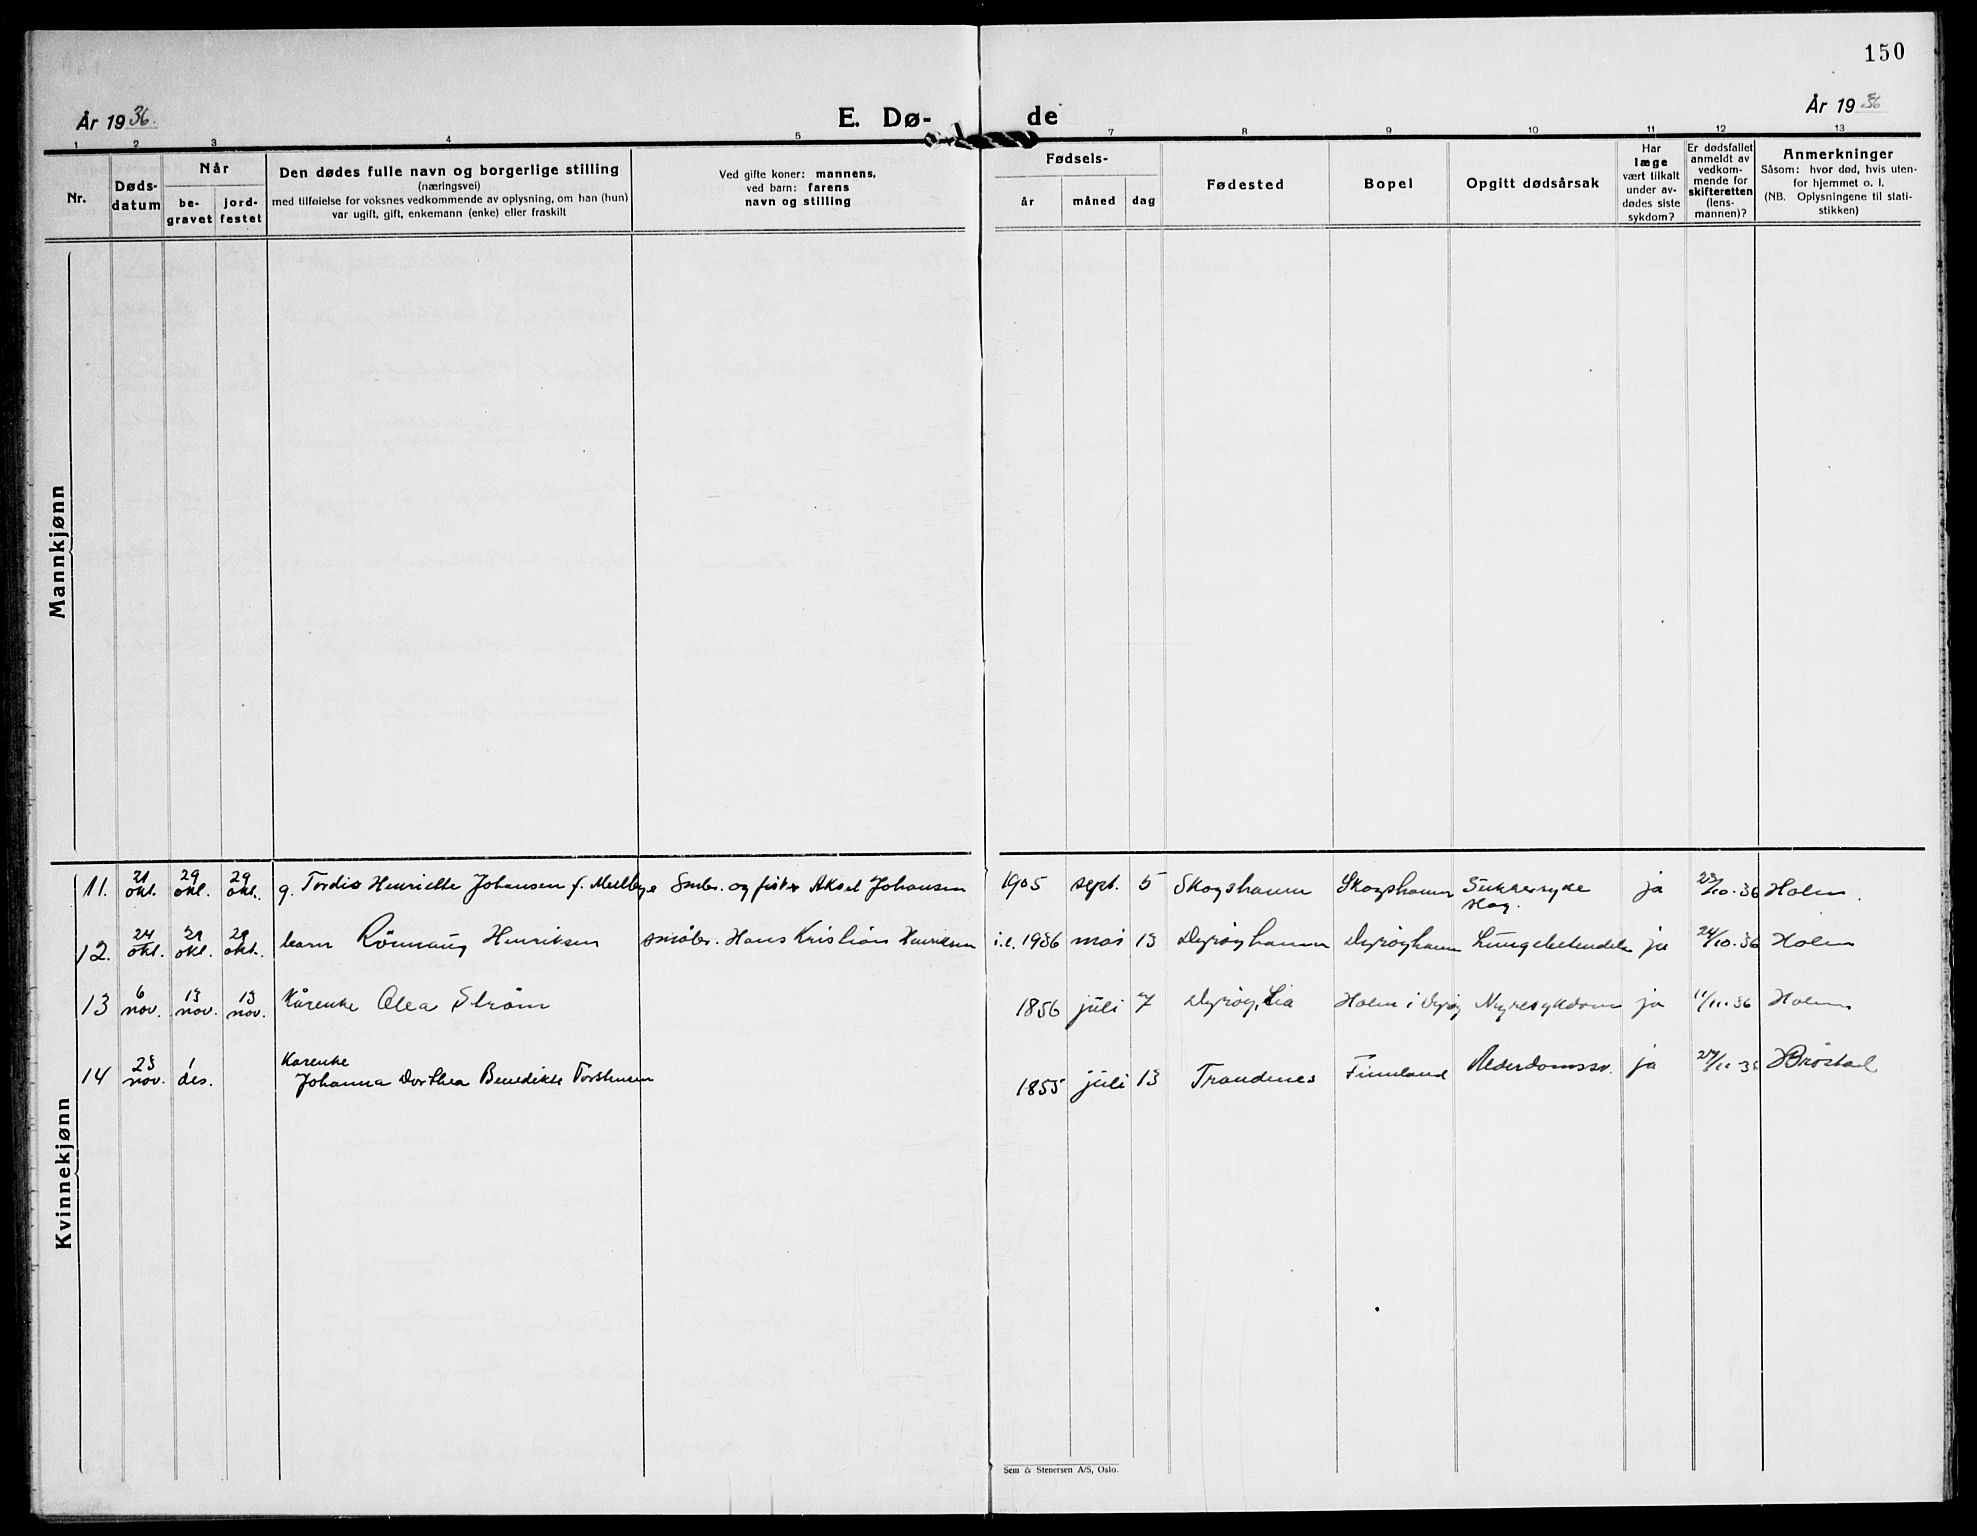 150
År 1936.
E. Dø-
de
År 1936
1 2 3 4 5 7 8 9 10 11 12 13
Nr.
Døds-
datum
Når
be-
gravet
jord-
festet
Den dødes fulle navn og borgerlige stilling
(næringsvei)
med tilføielse for voksnes vedkommende av oplysning, om han (hun)
var ugift, gift, enkemann (enke) eller fraskilt
Ved gifte koner: mannens,
ved barn: farens
navn og stilling
Fødsels-
år
måned
dag
Fødested
Bopel
Opgitt dødsårsak
Har
læge
vært tilkalt
under av-
dødes siste
sykdom?
Er dødsfallet
anmeldt av
vedkom-
mende for
skifteretten
(lens-
mannen)?
Anmerkninger
Såsom: hvor død, hvis uten-
for hjemmet o. l.
(NB. Oplysningene til stati-
stikken)
Mannkjønn
Kvinnekjønn
11. 21 okt. 29 okt. 29 okt. g. Tordis Henriette Johansen f. Mellbye Smbr. og fisker Aksel Johansen 1905 sept. 5 Skogshamn Skogshamn Sukkersyke ja 23/10-36 Holm
12. 24 okt. 29 okt. 29 okt. barn Rönnaug Henriksen småbr. Hans Kristian Henriksen i.e. 1936 mai 13 Dyröyhamn Dyröyhamn Lungebetendelse ja 24/10-36 Holm
13 6 nov. 13 nov. 13 nov. Kårenke Olea Strøm 1856 juli 7 Dyröy, Lia Holm i Dyröy Nyresykdom ja 11/11-36 Holm
14 23 nov. 1 des. Kårenke
Johanna Dorthea Benedikte Torstensen 1855 juli 13 Trondenes Finnland Alderdomssv. ja 27/11-36 Brøstad
Sem & Stenersen A/S, Oslo.